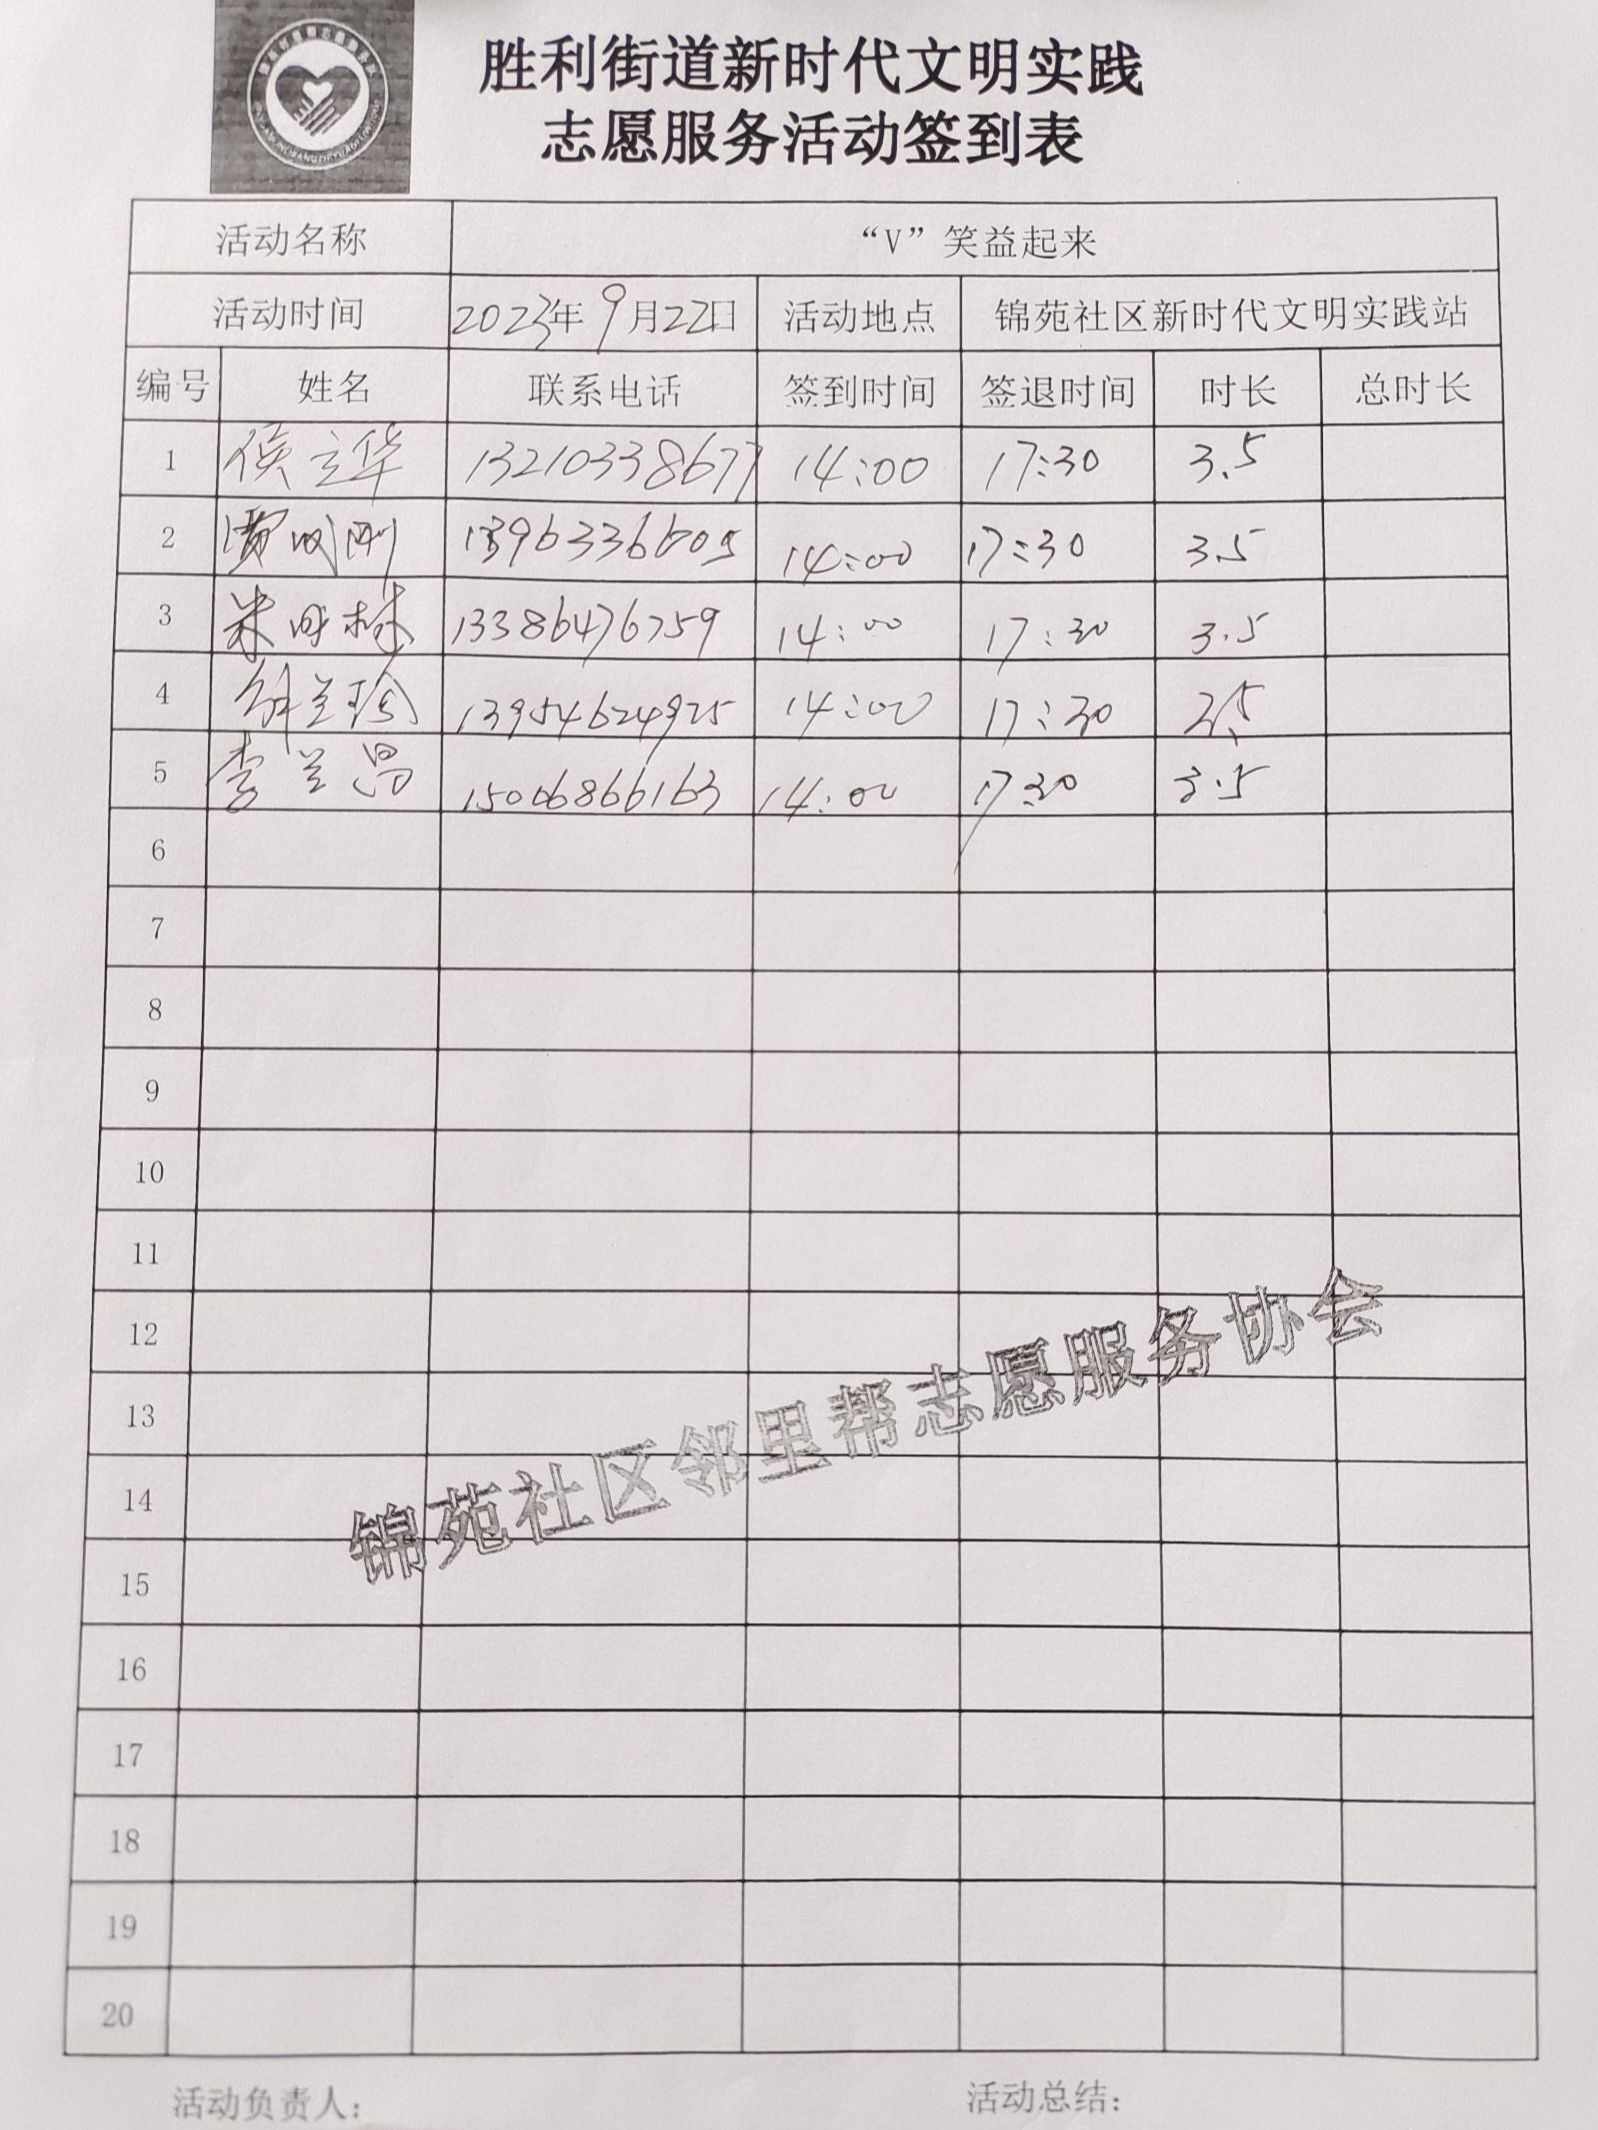 胜利街道新时代文明实践
志愿服务活动签到表
活动名称 “V”笑益起来
活动时间 2023年9月22日 活动地点 锦苑社区新时代文明实践站
编号 姓名 联系电话 签到时间 签退时间 时长 总时长
1 侯立华 13210338677 14:00 17:30 3.5
2 13963366 14:00 17:30 3.5
3 13386476759 14:00 17:30 3.5
4 兰 13954624925 14:00 17:30 3.5
5 李兰昌 15006866163 14:00 17:30 3.5
6
7
8
9
10
11
12
13
14
15
16
17
18
19
20
锦苑社区邻里帮志愿服务协会
活动负责人: 活动总结: